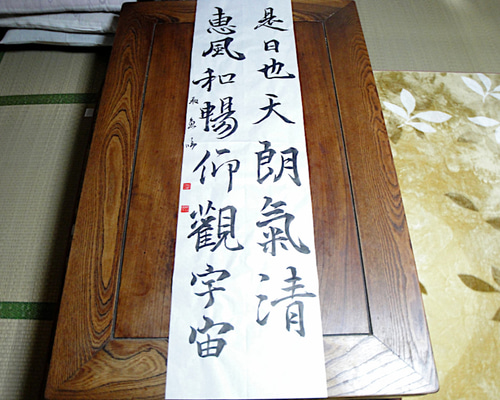 是日也天朗氣清
惠風和暢仰觀宇宙